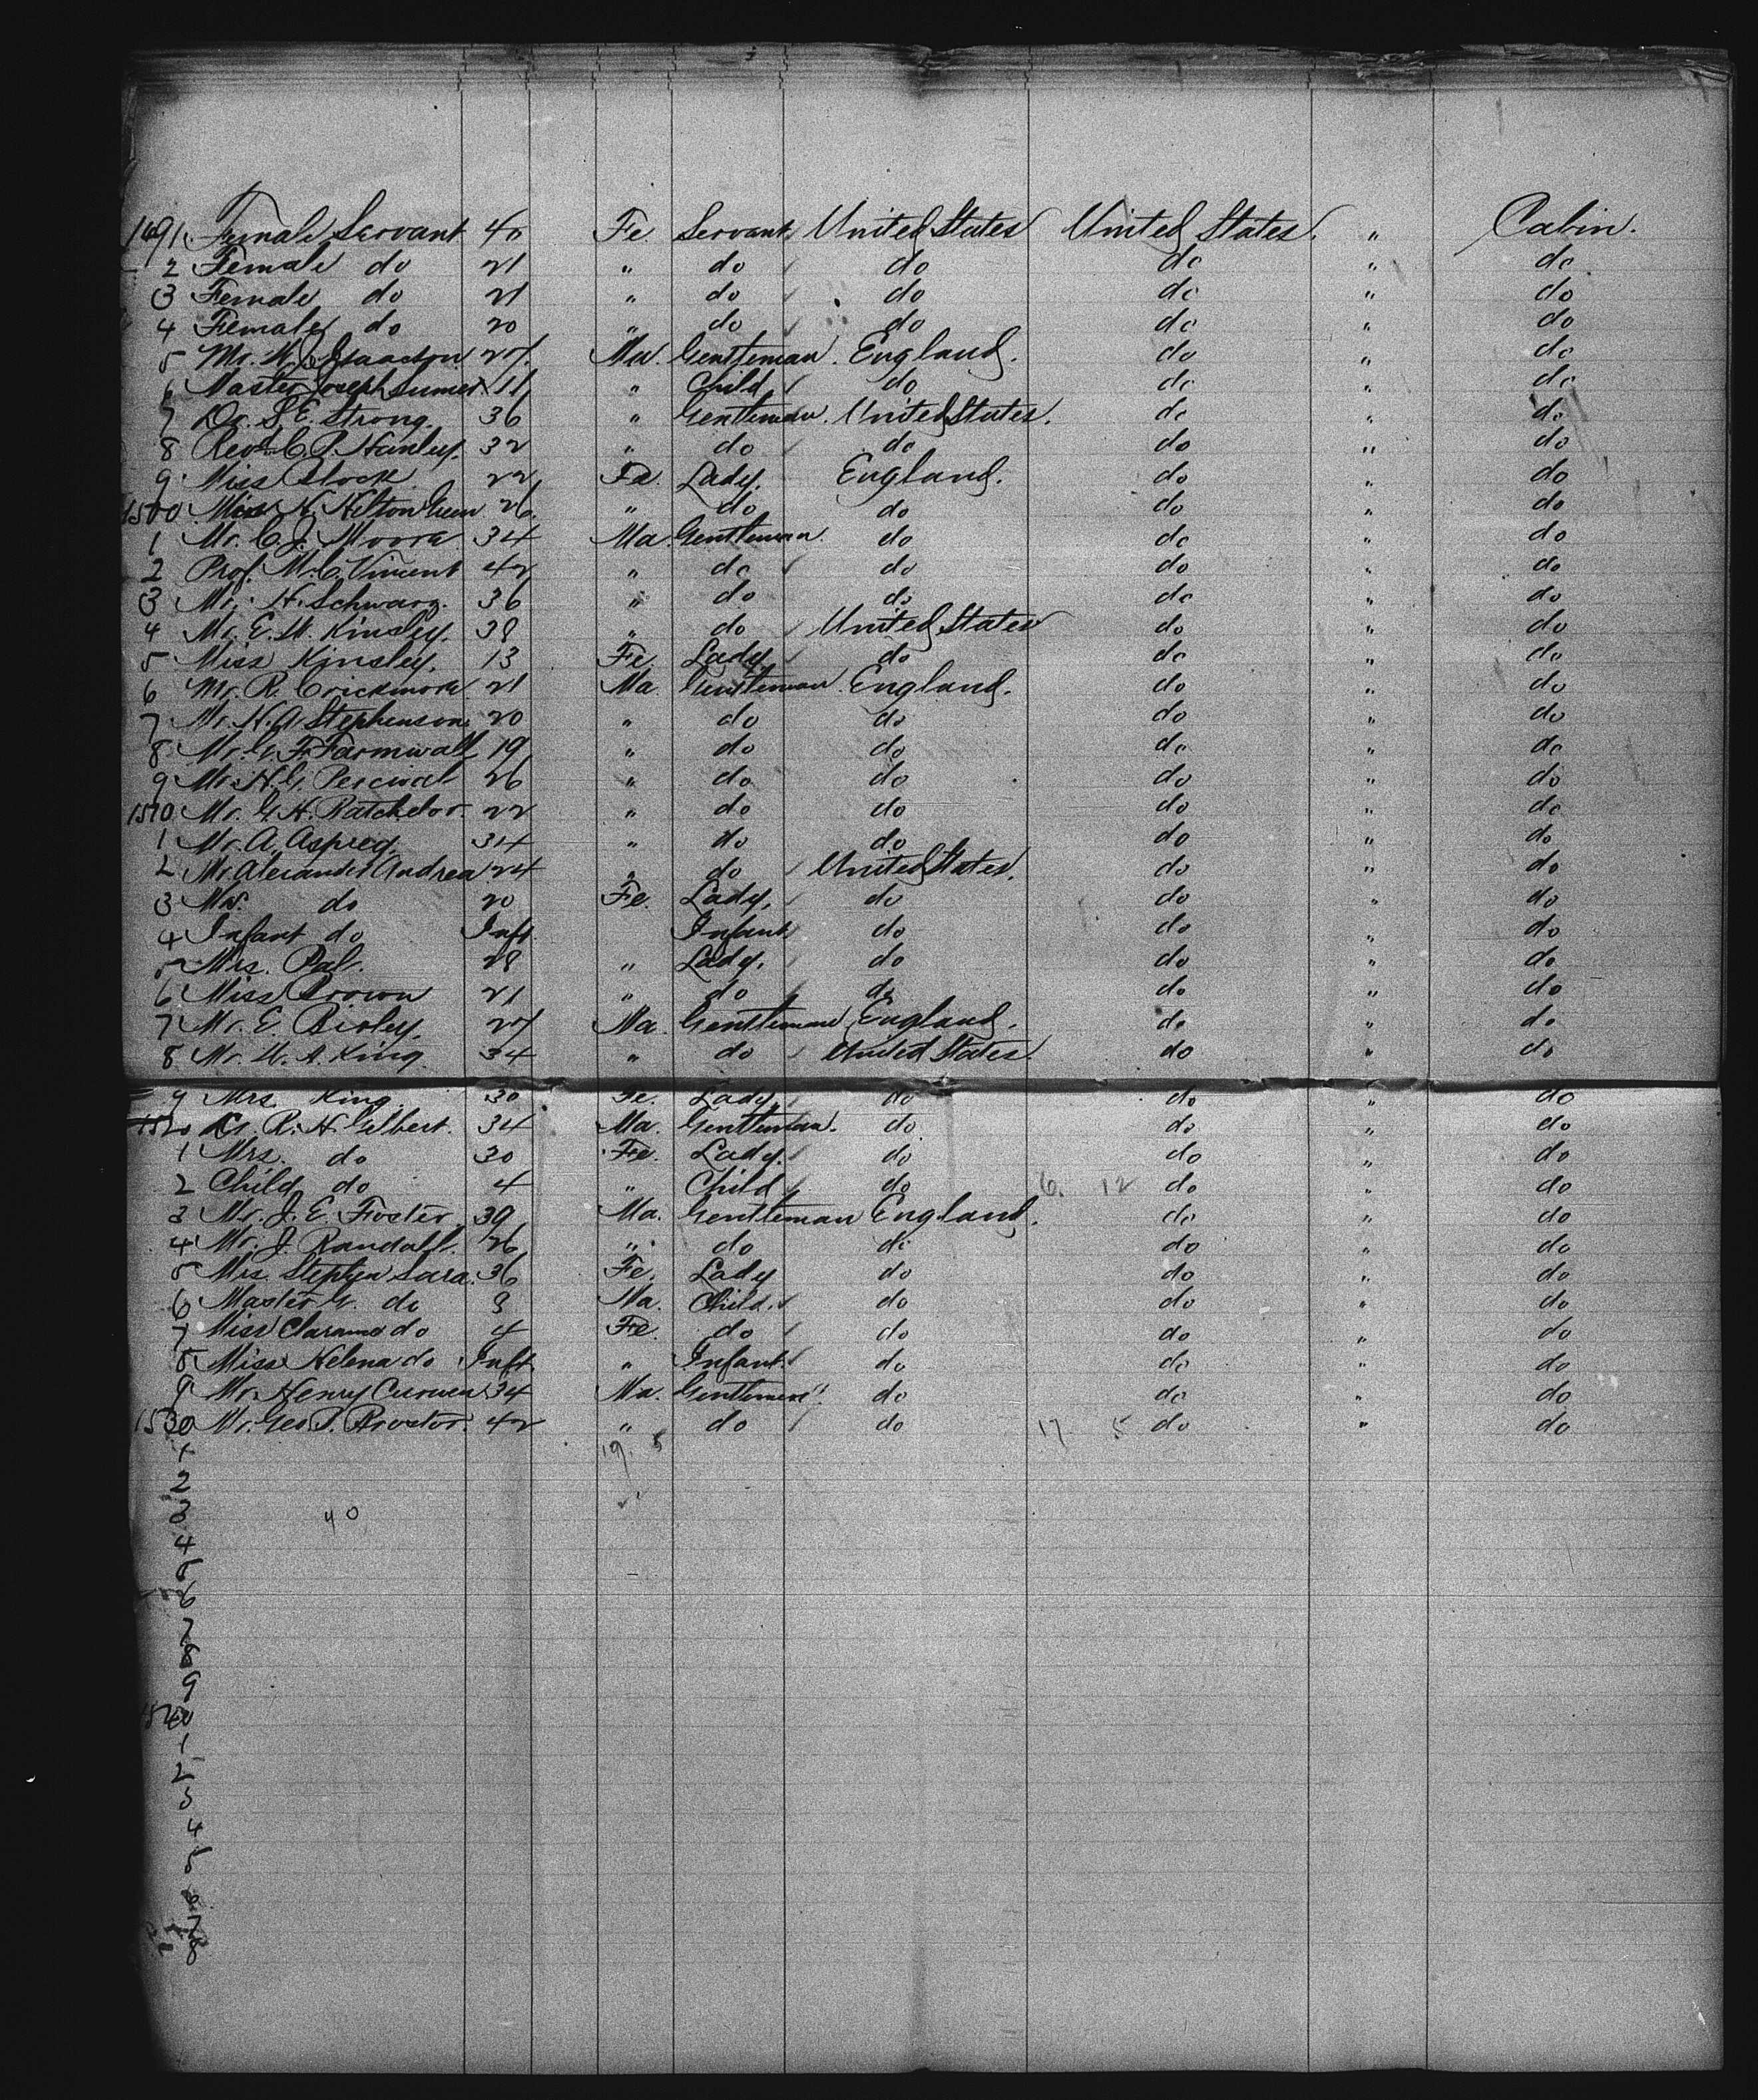 1491 Female Servant 40 Fe. Servant United States United States. " Cabin.
2 Female do 21 " do do do " do
3 Female do 21 " do do do " do
4 Female do 20 " do do do " do
5 Mr. Isaacson 27 Ma. Gentleman. England. do " do
6 Master Joseph 11 " Child do do " do
7 Dr. S. E. Strong. 36 " Gentleman. United States. do " do
8 Revd. C. P. Hanley. 32 " do do do " do
9 Miss Block 22 Fe. Lady. England. do " do
1500 Miss N. 26. " do do do " do
1 Mr. C. J. Moora 34 Ma. Gentleman do do " do
2 Prof. M. C. Vincent 42 " do do do " do
3 Mr. H. Schwarz. 36 " do do do " do
4 Mr. E. W. Kinsley. 38 " do United States do " do
5 Miss Kinsley. 13 Fe. Lady. do do " do
6 Mr. R. Crickmora 21 Ma Gentleman England. do " do
7 Mr. H. A. Stephenson 20 " do do do " do
8 Mr. G. F. Farmwall 19 " do do do " do
9 Mr. H. G. Percival 26 " do do do " do
1510 Mr. G. H. Batchelor. 22 " do do do " do
1 Mr. A. Asprey. 34 " do do do " do
2 Mr Alexander Andrea 24 " do United States. do " do
3 Mrs. do 20 Fe. Lady. do do " do
4 Infant do Inft. Infant do do " do
5 Mrs. Pal. 28 " Lady. do do " do
6 Miss Brown 21 " do do do " do
7 Mr. E. Bisley. 27 Ma. Gentleman England. do " do
8 Mr. W. A. King. 34 " do United States. do " do
9 Mrs. King. 30 Fe. Lady. do do " do
1520 R. H. Gilbert. 34 Ma. Gentleman. do do " do
1 Mrs. do 30 Fe. Lady. do do " do
2 Child do 4 " Child do 6. 12 do " do
3 Mr. J. E. Foster 39 Ma. Gentleman England. do " do
4 Mr. J. Randall. 26 " do do do " do
5 Mrs. Stephen Sara. 36 Fe. Lady do do " do
6 Master G. do 9 Ma. Child. do do " do
7 Miss do 4 Fe. do do do " do
8 Miss Helena do Inft " Infant. do do " do
9 Mr. Henry Curwen 34 Ma. Gentleman do do " do
1530 Mr. Geo. P. Broctor. 42 " do do 17 5 do " do
1 19. 5
2
3 40
4
5
6
7
8
9
1540
1
2
3
4
5
6
7
8